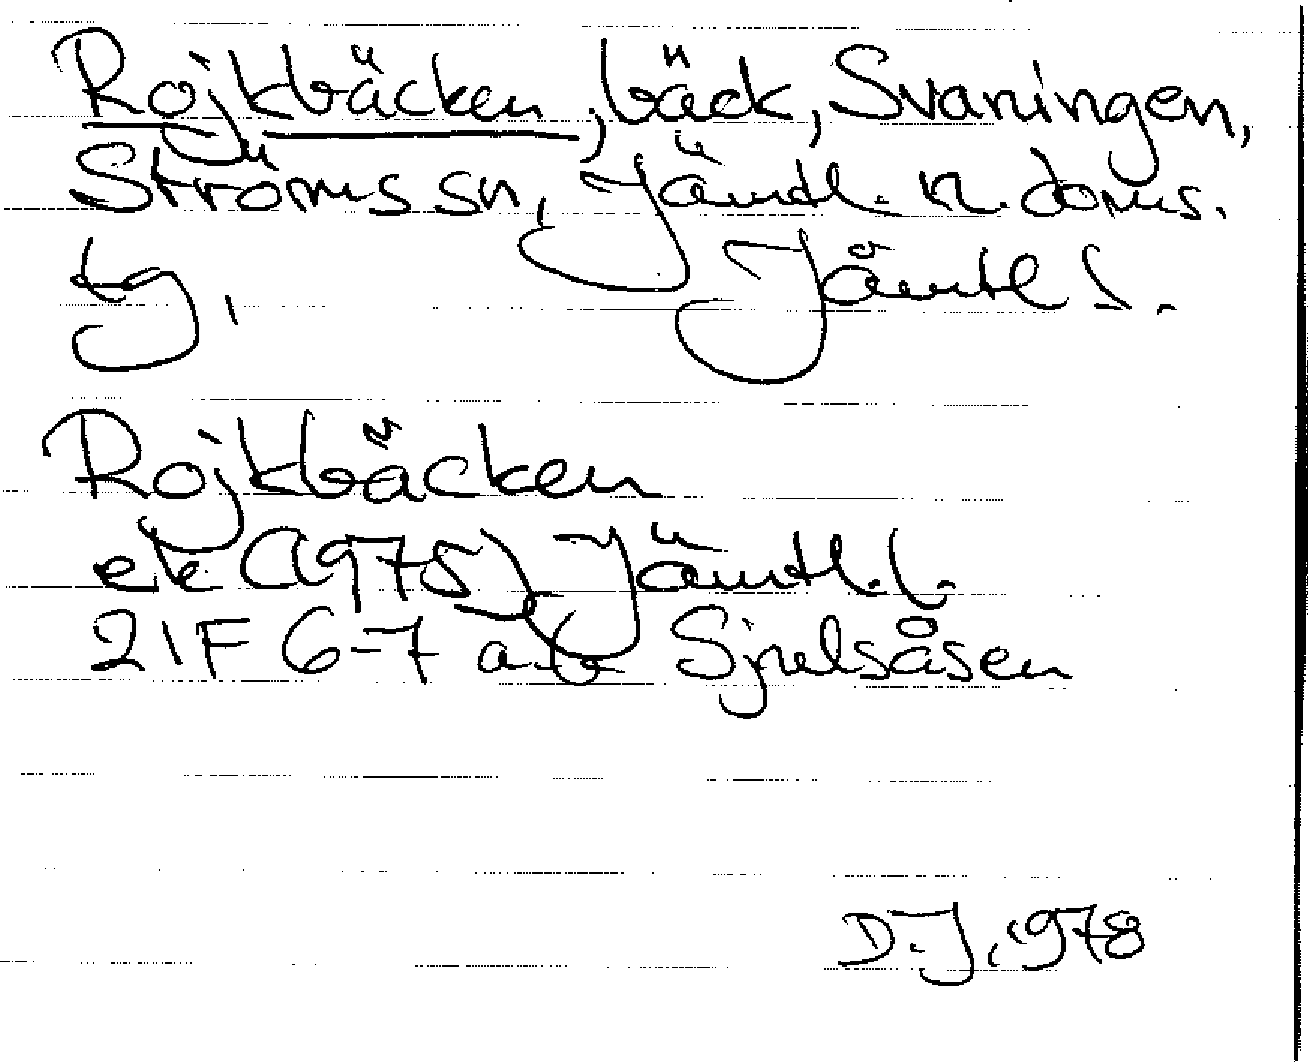 Rojkbäcken, bäck, Svaningen,
Ströms sn, Jämtl. n. doms.
tg, Jämtl l.
Rojkbäcken
ek (1975) Jämtl. l.
21F 6-7 a.b Sjulsåsen
D.J. 1978